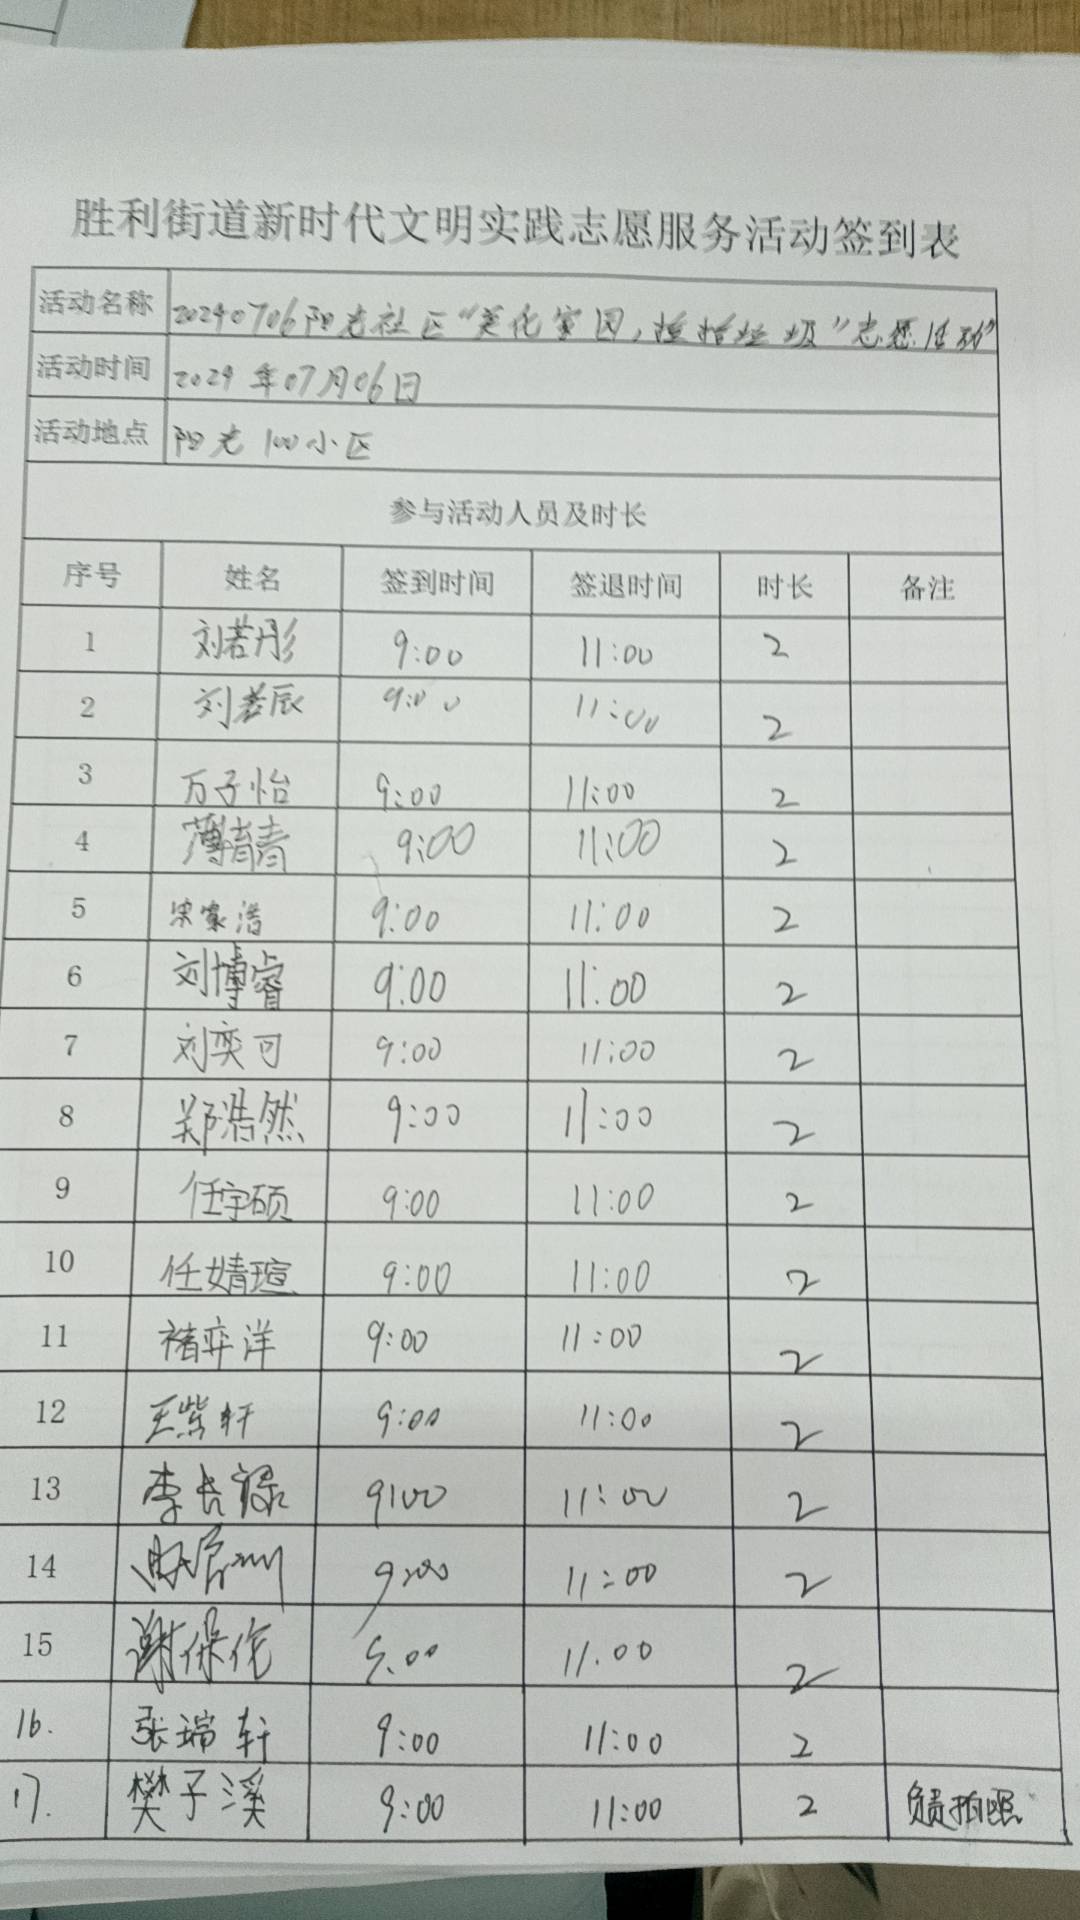 胜利街道新时代文明实践志愿服务活动签到表
活动名称 20240706阳光社区“美化家园，捡拾垃圾”志愿活动”
活动时间 2024年07月06日
活动地点 阳光100小区
参与活动人员及时长
序号 姓名 签到时间 签退时间 时长 备注
1 刘若彤 9:00 11:00 2
2 刘若辰 9:00 11:00 2
3 万子怡 9:00 11:00 2
4 薄青 9:00 11:00 2
5 宋家浩 9:00 11:00 2
6 刘博睿 9:00 11:00 2
7 刘奕可 9:00 11:00 2
8 郑浩然 9:00 11:00 2
9 任宇硕 9:00 11:00 2
10 任婧瑄 9:00 11:00 2
11 褚弈洋 9:00 11:00 2
12 王紫轩 9:00 11:00 2
13 李长禄 9:00 11:00 2
14 9:00 11:00 2
15 谢保伦 9:00 11:00 2
16. 张瑞轩 9:00 11:00 2
17. 樊子溪 9:00 11:00 2 负责拍照